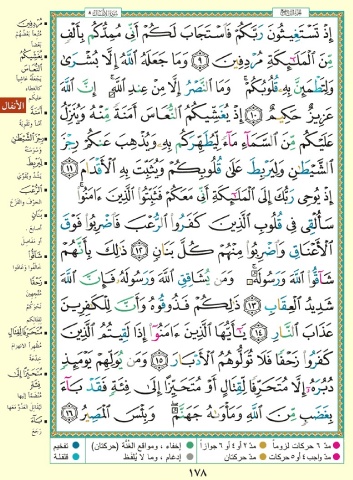 الجزء التاسع
إِذْ تَسْتَغِيثُونَ رَبَّكُمْ فَاسْتَجَابَ لَكُمْ أَنِّي مُمِدُّكُم بِأَلْفٍ
مِّنَ الْمَلَائِكَةِ مُرْدِفِينَ ٩ وَمَا جَعَلَهُ اللَّهُ إِلَّا بُشْرَىٰ
وَلِتَطْمَئِنَّ بِهِ قُلُوبُكُمْ ۚ وَمَا النَّصْرُ إِلَّا مِنْ عِندِ اللَّهِ ۚ إِنَّ اللَّهَ
عَزِيزٌ حَكِيمٌ ١٠ إِذْ يُغَشِّيكُمُ النُّعَاسَ أَمَنَةً مِّنْهُ وَيُنَزِّلُ
عَلَيْكُم مِّنَ السَّمَاءِ مَاءً لِّيُطَهِّرَكُم بِهِ وَيُذْهِبَ عَنكُمْ رِجْزَ
الشَّيْطَانِ وَلِيَرْبِطَ عَلَىٰ قُلُوبِكُمْ وَيُثَبِّتَ بِهِ الْأَقْدَامَ ١١
إِذْ يُوحِي رَبُّكَ إِلَى الْمَلَائِكَةِ أَنِّي مَعَكُمْ فَثَبِّتُوا الَّذِينَ آمَنُوا ۚ
سَأُلْقِي فِي قُلُوبِ الَّذِينَ كَفَرُوا الرُّعْبَ فَاضْرِبُوا فَوْقَ
الْأَعْنَاقِ وَاضْرِبُوا مِنْهُمْ كُلَّ بَنَانٍ ١٢ ذَٰلِكَ بِأَنَّهُمْ
شَاقُّوا اللَّهَ وَرَسُولَهُ ۚ وَمَن يُشَاقِقِ اللَّهَ وَرَسُولَهُ فَإِنَّ اللَّهَ
شَدِيدُ الْعِقَابِ ١٣ ذَٰلِكُمْ فَذُوقُوهُ وَأَنَّ لِلْكَافِرِينَ
عَذَابَ النَّارِ ١٤ يَا أَيُّهَا الَّذِينَ آمَنُوا إِذَا لَقِيتُمُ الَّذِينَ
كَفَرُوا زَحْفًا فَلَا تُوَلُّوهُمُ الْأَدْبَارَ ١٥ وَمَن يُوَلِّهِمْ يَوْمَئِذٍ
دُبُرَهُ إِلَّا مُتَحَرِّفًا لِّقِتَالٍ أَوْ مُتَحَيِّزًا إِلَىٰ فِئَةٍ فَقَدْ بَاءَ
بِغَضَبٍ مِّنَ اللَّهِ وَمَأْوَاهُ جَهَنَّمُ ۖ وَبِئْسَ الْمَصِيرُ ١٦
الأنفال
مُرْدِفِينَ
يُغَشِّيكُمُ النُّعَاسَ
أَمَنَةً
رِجْزَ الشَّيْطَانِ
لِيَرْبِطَ
الرُّعْبَ
بَنَانٍ
شَاقُّوا
زَحْفًا
مُتَحَرِّفًا لِّقِتَالٍ
مُتَحَيِّزًا إِلَىٰ فِئَةٍ
بَاءَ
رجع
مدّ ٦ حركات لزوماً
مدّ ٢ أو ٤ أو ٦ جوازاً
إخفاء، ومواقع الغُنَّة (حركتان)
تفخيم
مدّ واجب ٤ أو ٥ حركات
مدّ حركتان
إدغام، وما لا يُلفَظ
قلقلة
١٧٨